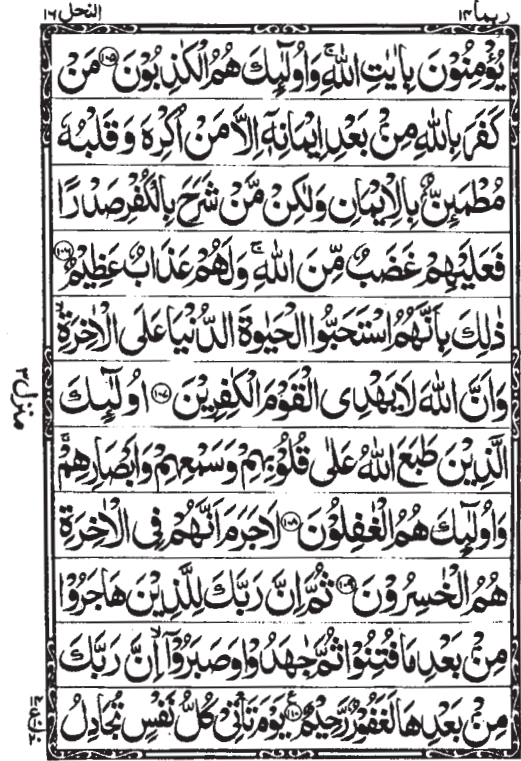 ربما ١٤ النحل ١٦
يُؤْمِنُوْنَ بِاٰيٰتِ اللّٰهِ ۚ وَاُولٰٓئِكَ هُمُ الْكٰذِبُوْنَ ﴿۱۰۵﴾ مَنْ
كَفَرَ بِاللّٰهِ مِنْۢ بَعْدِ اِيْمَانِهٖٓ اِلَّا مَنْ اُكْرِهَ وَ قَلْبُهٗ
مُطْمَئِنٌّۢ بِالْاِيْمَانِ وَلٰكِنْ مَّنْ شَرَحَ بِالْكُفْرِ صَدْرًا
فَعَلَيْهِمْ غَضَبٌ مِّنَ اللّٰهِ ۚ وَلَهُمْ عَذَابٌ عَظِيْمٌ ﴿۱۰۶﴾
ذٰلِكَ بِاَنَّهُمُ اسْتَحَبُّوا الْحَيٰوةَ الدُّنْيَا عَلَى الْاٰخِرَةِ ۙ
وَاَنَّ اللّٰهَ لَا يَهْدِى الْقَوْمَ الْكٰفِرِيْنَ ﴿۱۰۷﴾ اُولٰٓئِكَ
الَّذِيْنَ طَبَعَ اللّٰهُ عَلٰى قُلُوْبِهِمْ وَسَمْعِهِمْ وَاَبْصَارِهِمْ ۚ
وَاُولٰٓئِكَ هُمُ الْغٰفِلُوْنَ ﴿۱۰۸﴾ لَاجَرَمَ اَنَّهُمْ فِى الْاٰخِرَةِ
هُمُ الْخٰسِرُوْنَ ﴿۱۰۹﴾ ثُمَّ اِنَّ رَبَّكَ لِلَّذِيْنَ هَاجَرُوْا
مِنْۢ بَعْدِ مَا فُتِنُوْا ثُمَّ جٰهَدُوْا وَصَبَرُوْٓا ۙ اِنَّ رَبَّكَ
مِنْۢ بَعْدِهَا لَغَفُوْرٌ رَّحِيْمٌ ﴿۱۱۰﴾ يَوْمَ تَاْتِىْ كُلُّ نَفْسٍ تُجَادِلُ
منزل ٣